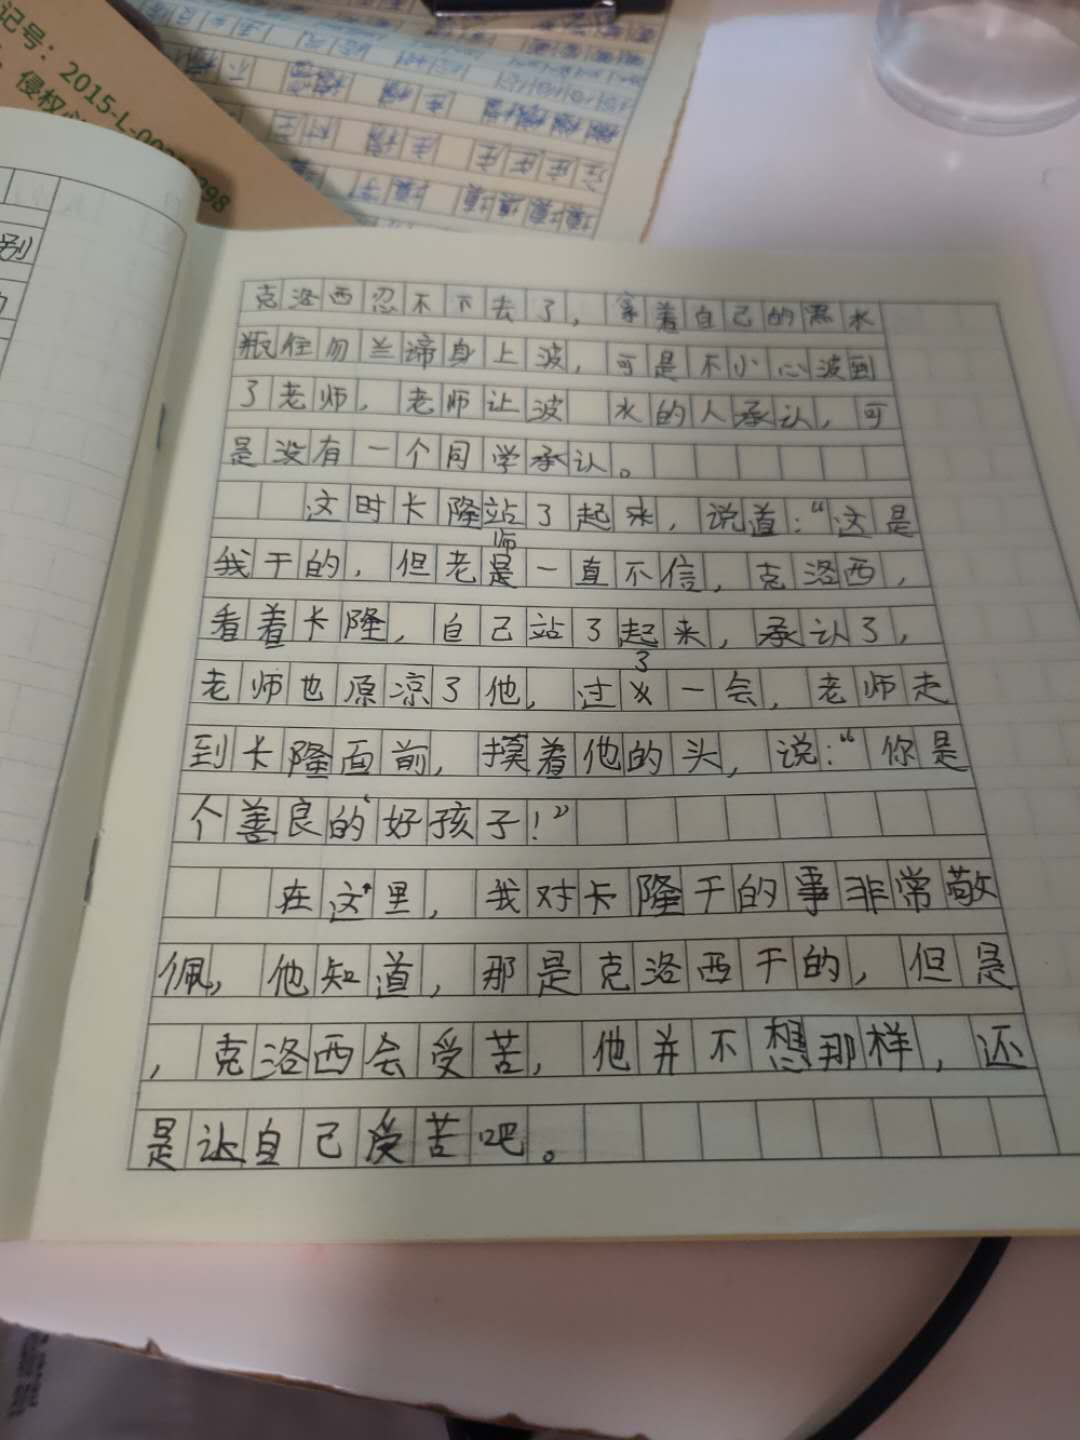 记号：2015-L-00
398
侵权
别
克洛西忍不下去了，拿着自己的黑水
瓶往勿兰谛身上波，可是不小心波到
了老师，老师让波 水的人承认，可
是没有一个同学承认。
这时卡隆站了起来，说道：“这是
我干的，但老师一直不信，克洛西，
看着卡隆，自己站了起来，承认了，
老师也原凉了他，过了一会，老师走
到卡隆面前，摸着他的头，说：“你是
个善良的‘好孩子！”
在这里，我对卡隆干的事非常敬
佩，他知道，那是克洛西干的，但是
，克洛西会受苦，他并不想那样，还
是让自己受苦吧。